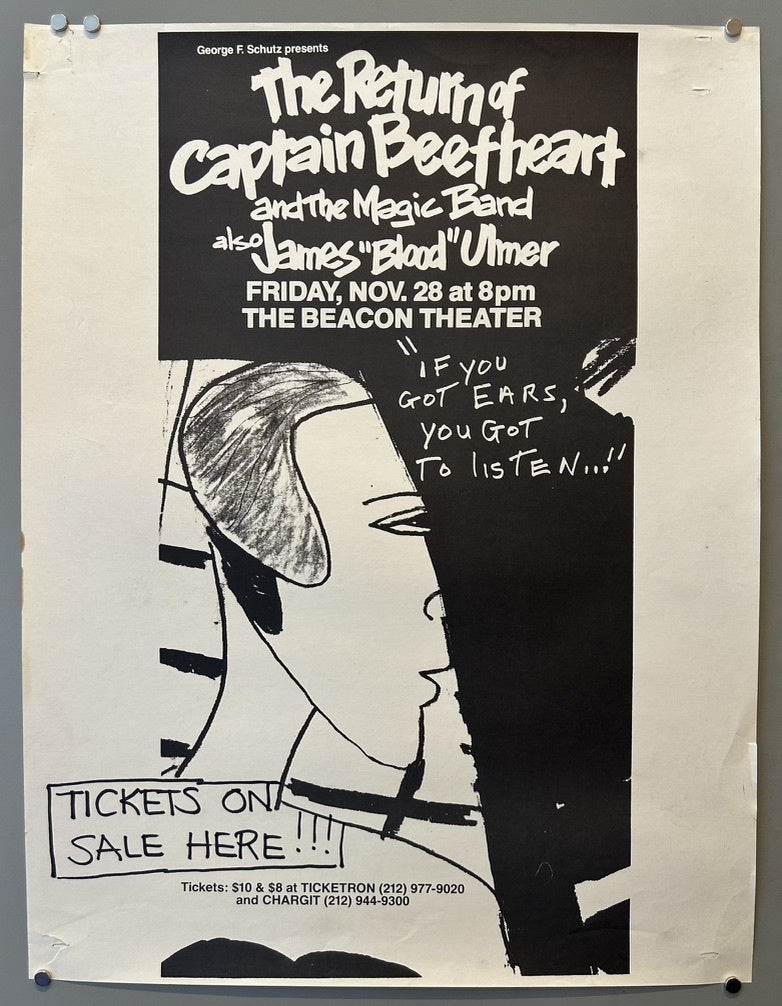 George F. Schutz presents
The Return of
Captain Beefheart
and The Magic Band
also James "Blood" Ulmer
FRIDAY, NOV. 28 at 8pm
THE BEACON THEATER
"IF YOU
GOT EARS,
YOU GOT
TO LISTEN...!"
TICKETS ON
SALE HERE!!!
Tickets: $10 & $8 at TICKETRON (212) 977-9020
and CHARGIT (212) 944-9300